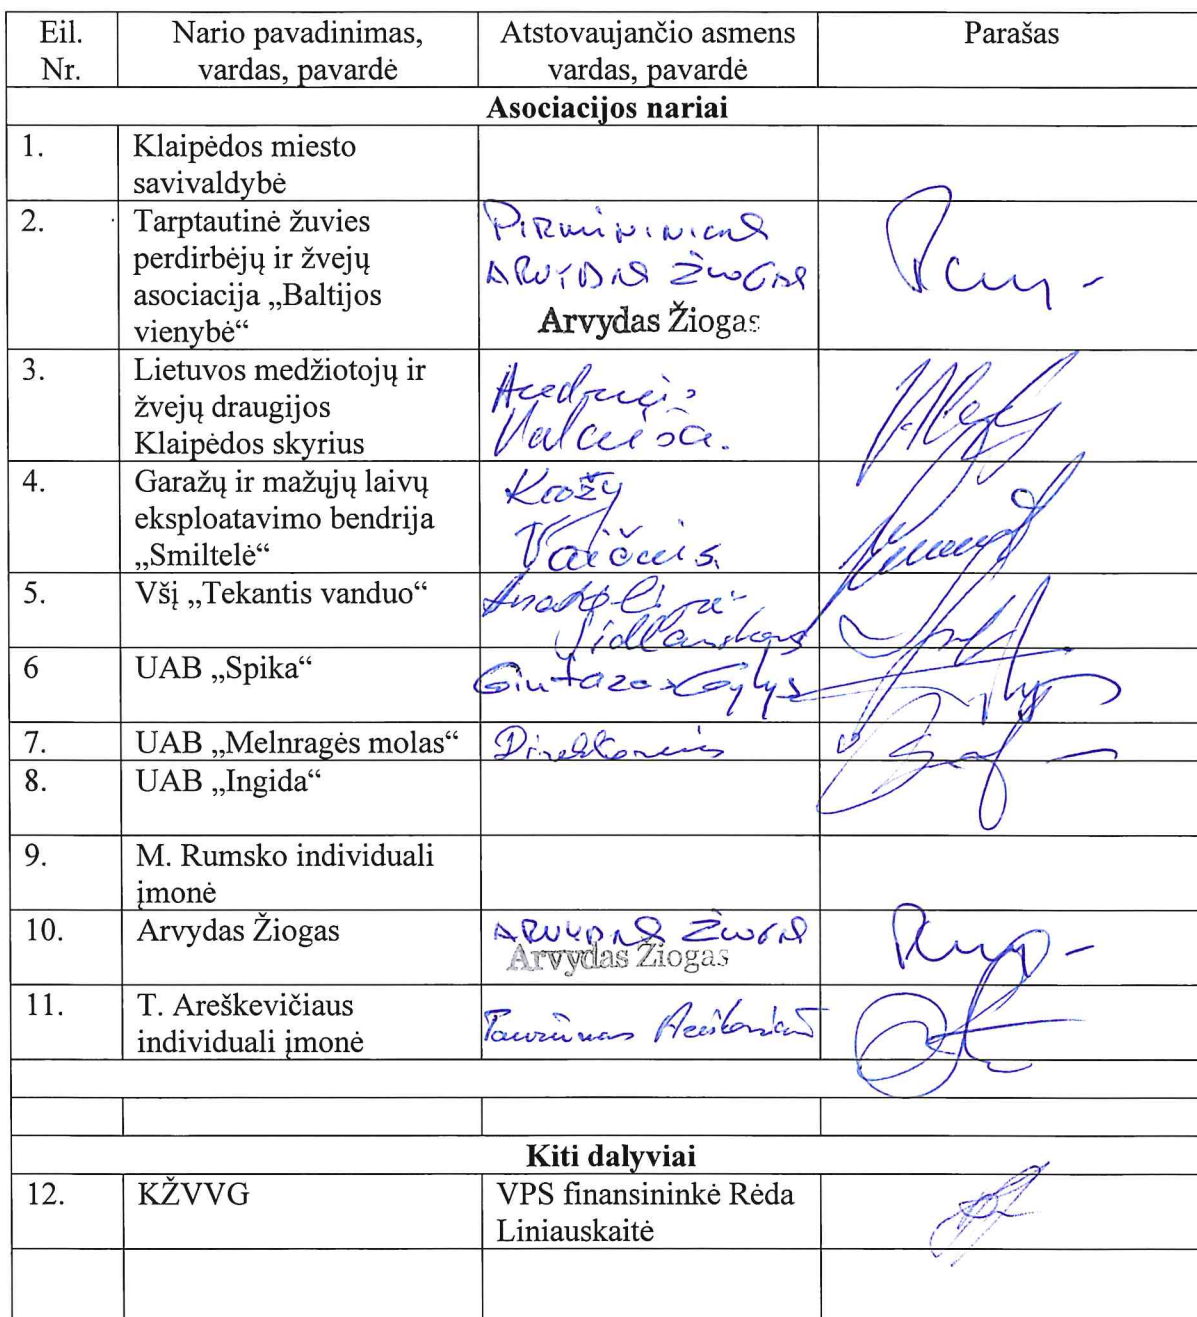 Eil. Nr.
Nario pavadinimas, vardas, pavardė
Atstovaujančio asmens vardas, pavardė
Parašas
Asociacijos nariai
1.
Klaipėdos miesto
savivaldybė
2.
Tarptautinė žuvies
perdirbėjų ir žvejų
asociacija „Baltijos
vienybė“
Arvydas Žiogas
3.
Lietuvos medžiotojų ir
žvejų draugijos
Klaipėdos skyrius
4.
Garažų ir mažųjų laivų
eksploatavimo bendrija
„Smiltelė“
5.
Všį „Tekantis vanduo“
6
UAB „Spika“
Gintaras Gylys
7.
UAB „Melnragės molas“
8.
UAB „Ingida“
9.
M. Rumsko individuali
įmonė
10.
Arvydas Žiogas
Arvydas Žiogas
11.
T. Areškevičiaus
individuali įmonė
Kiti dalyviai
12.
KŽVVG
VPS finansininkė Rėda
Liniauskaitė